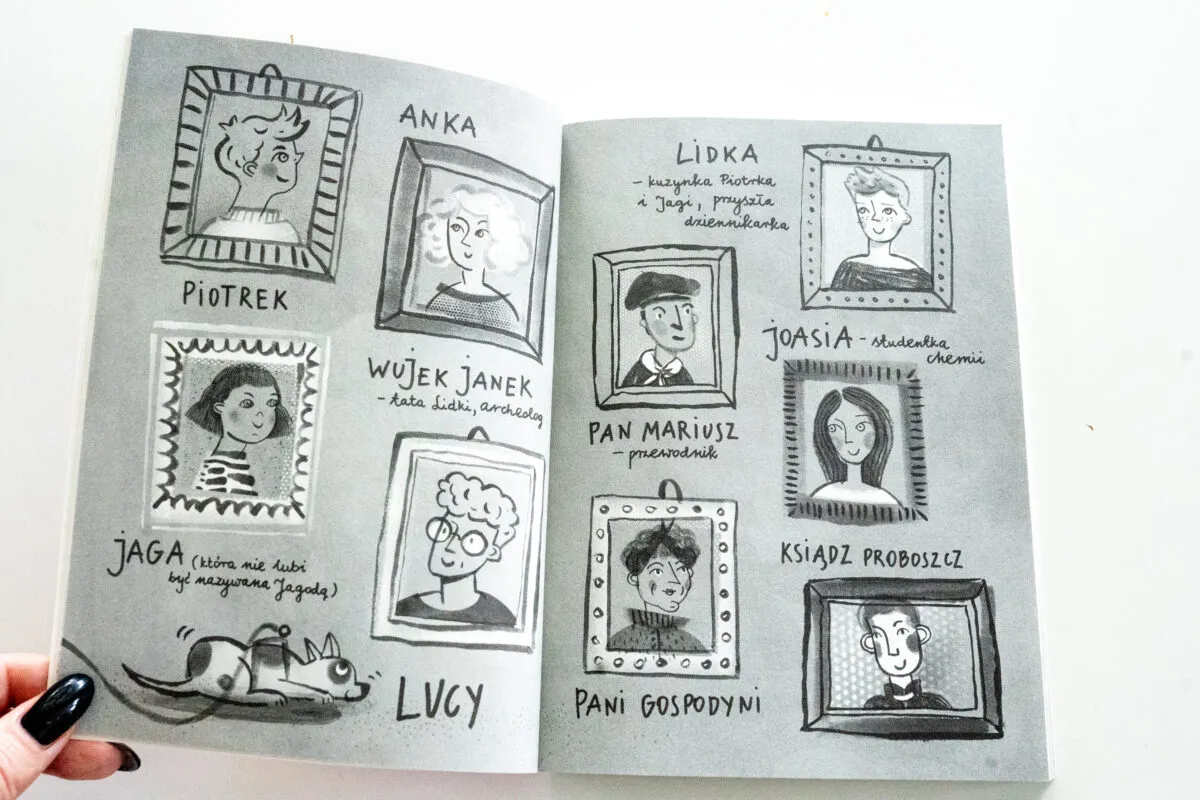 PIOTREK
ANKA
JAGA (która nie lubi
być nazywana Jagodą)
WUJEK JANEK
- tata Lidki, archeolog
LUCY
LIDKA
- kuzynka Piotrka
i Jagi, przyszła
dziennikarka
PAN MARIUSZ
- przewodnik
JOASIA - studentka
chemii
PANI GOSPODYNI
KSIĄDZ PROBOSZCZ